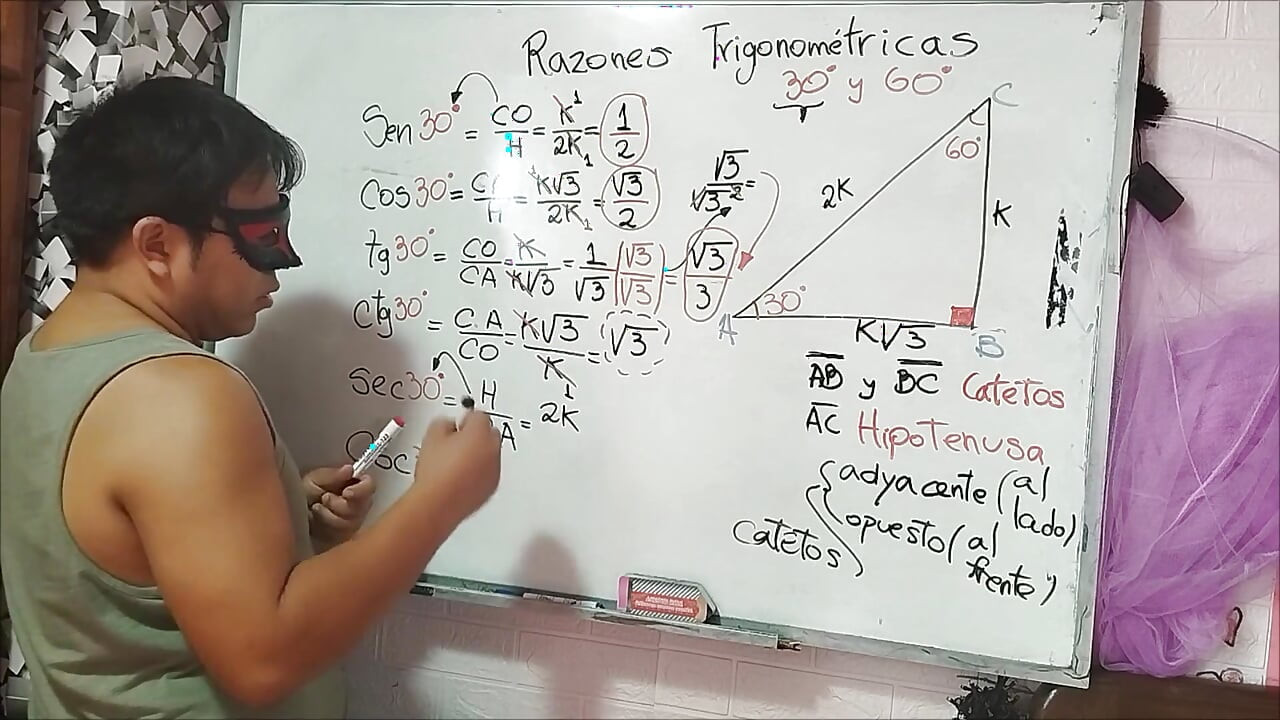 Razones Trigonométricas
30° y 60°
Sen 30° = CO/H = K/2K = 1/2
Cos 30° = CA/H = K√3/2K = √3/2
tg 30° = CO/CA = K/K√3 = 1/√3 (√3/√3) = √3/3
√3/√3² =
Ctg 30° = C.A/CO = K√3/K = √3
Sec 30° = H/CA = 2K
C
60°
2K
K
30°
A
K√3
B
AB y BC Catetos
AC Hipotenusa
Catetos
adyacente (al lado)
opuesto (al frente)